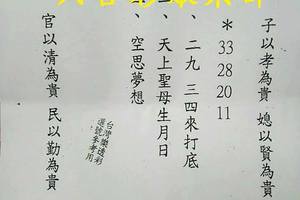 子以孝為貴 媳以賢為貴
＊33 28 20 11
、二九三四來打底
、天上聖母生月日
、空思夢想
官以清為貴 民以勤為貴
台灣樂透彩
選號參考用